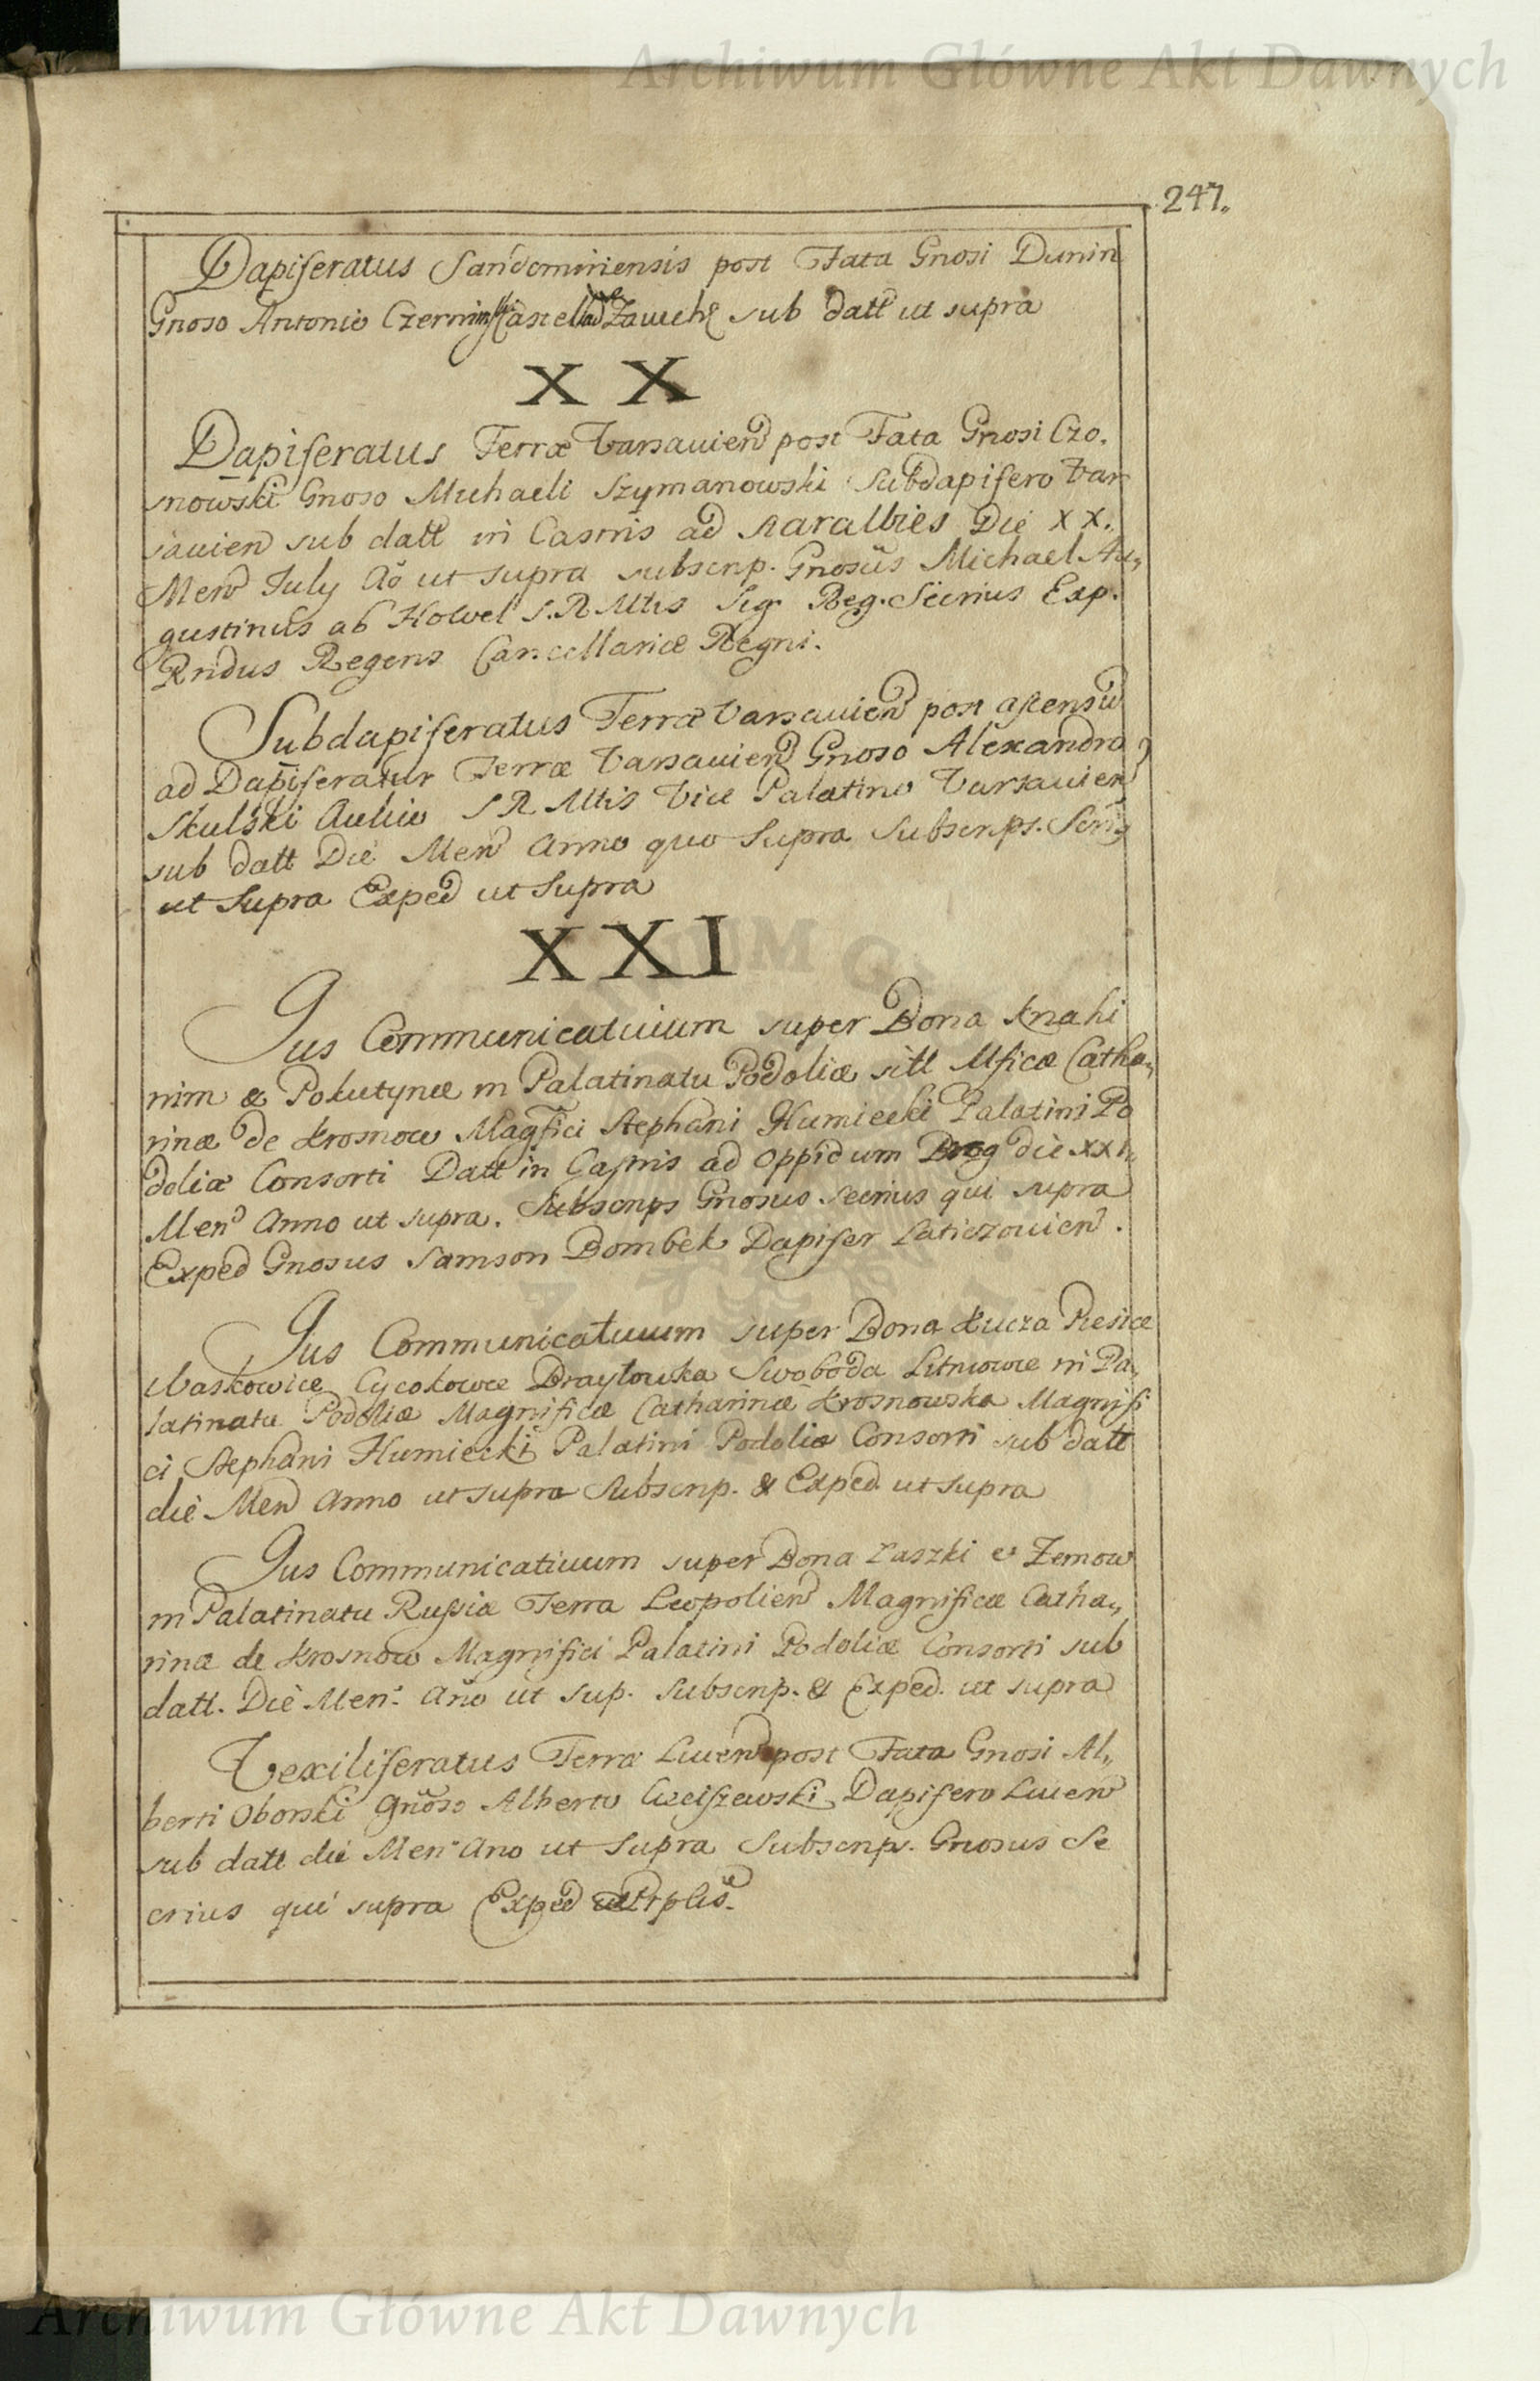 Archiwum Główne Akt Dawnych
247.
Dapiferatus Sandomiriensis post Fata Gnosi Dunin
Gnoso Antonio sub datt ut supra
XX
Dapiferatus Terræ Varsavien post Fata Gnosi Czo,
snowski Gnoso Michaeli Szymanowski Subdapifero Var
savien sub datt in Castris ad Die XX.
Men July Ao ut supra subscrip. Gnosus Michael Au,,
gustinus ab Howel S.R.Mtis Sig. Reg. Secrius Exp.
Rndus Regens Cancellariæ Regni.
Subdapiferatus Terræ Varsavien post ascensu
ad Dapiferatur Terræ Varsavien Gnoso Alexandro
Skulski Aulico S R Mtis Vice Palatino Varsavien
sub datt Die Men Anno quo Supra Subscrips.
ut Supra Exped ut Supra
XXI
Jus Communicativum super Bona Knahi
nim & Pokutynæ in Palatinatu Podoliæ sitt Mficæ Catha,,
rinæ de Krosnow Magfici Stephani Humiecki Palatini Po
doliæ Consorti Datt in Castris ad Oppidum die XXI.
Men Anno ut supra. Subscrips Gnosus Secrius qui supra
Exped Gnosus Samson Dombek Dapifer Laticzovien.
Jus Communicativum super Bona Kucza Resice
Waskowice Cycokowce Braylowka Swoboda Litniowce in Pa,
latinatu Podoliæ Magnificæ Catharinæ Krosnowska Magnifi
ci Stephani Humiecki Palatini Podoliæ Consorti sub datt
die Men Anno ut supra Subscrip. & Exped. ut supra
Jus Communicativum super Bona Laszki et Zemow
in Palatinatu Russiæ Terra Leopolien Magnificæ Catha,,
rinæ de Krosnow Magnifici Palatini Podoliæ Consorti sub
datt. Die Men. Año ut sup. Subscrip. & Exped. ut supra
Vexiliferatus Terræ Liven post Fata Gnosi Al,,
berti Oborski Gnoso Alberto Cieiszewski Dapifero Liven
sub datt die Men Ano ut Supra Subscrips. Gnosus Se
crius qui supra Exped
Archiwum Główne Akt Dawnych